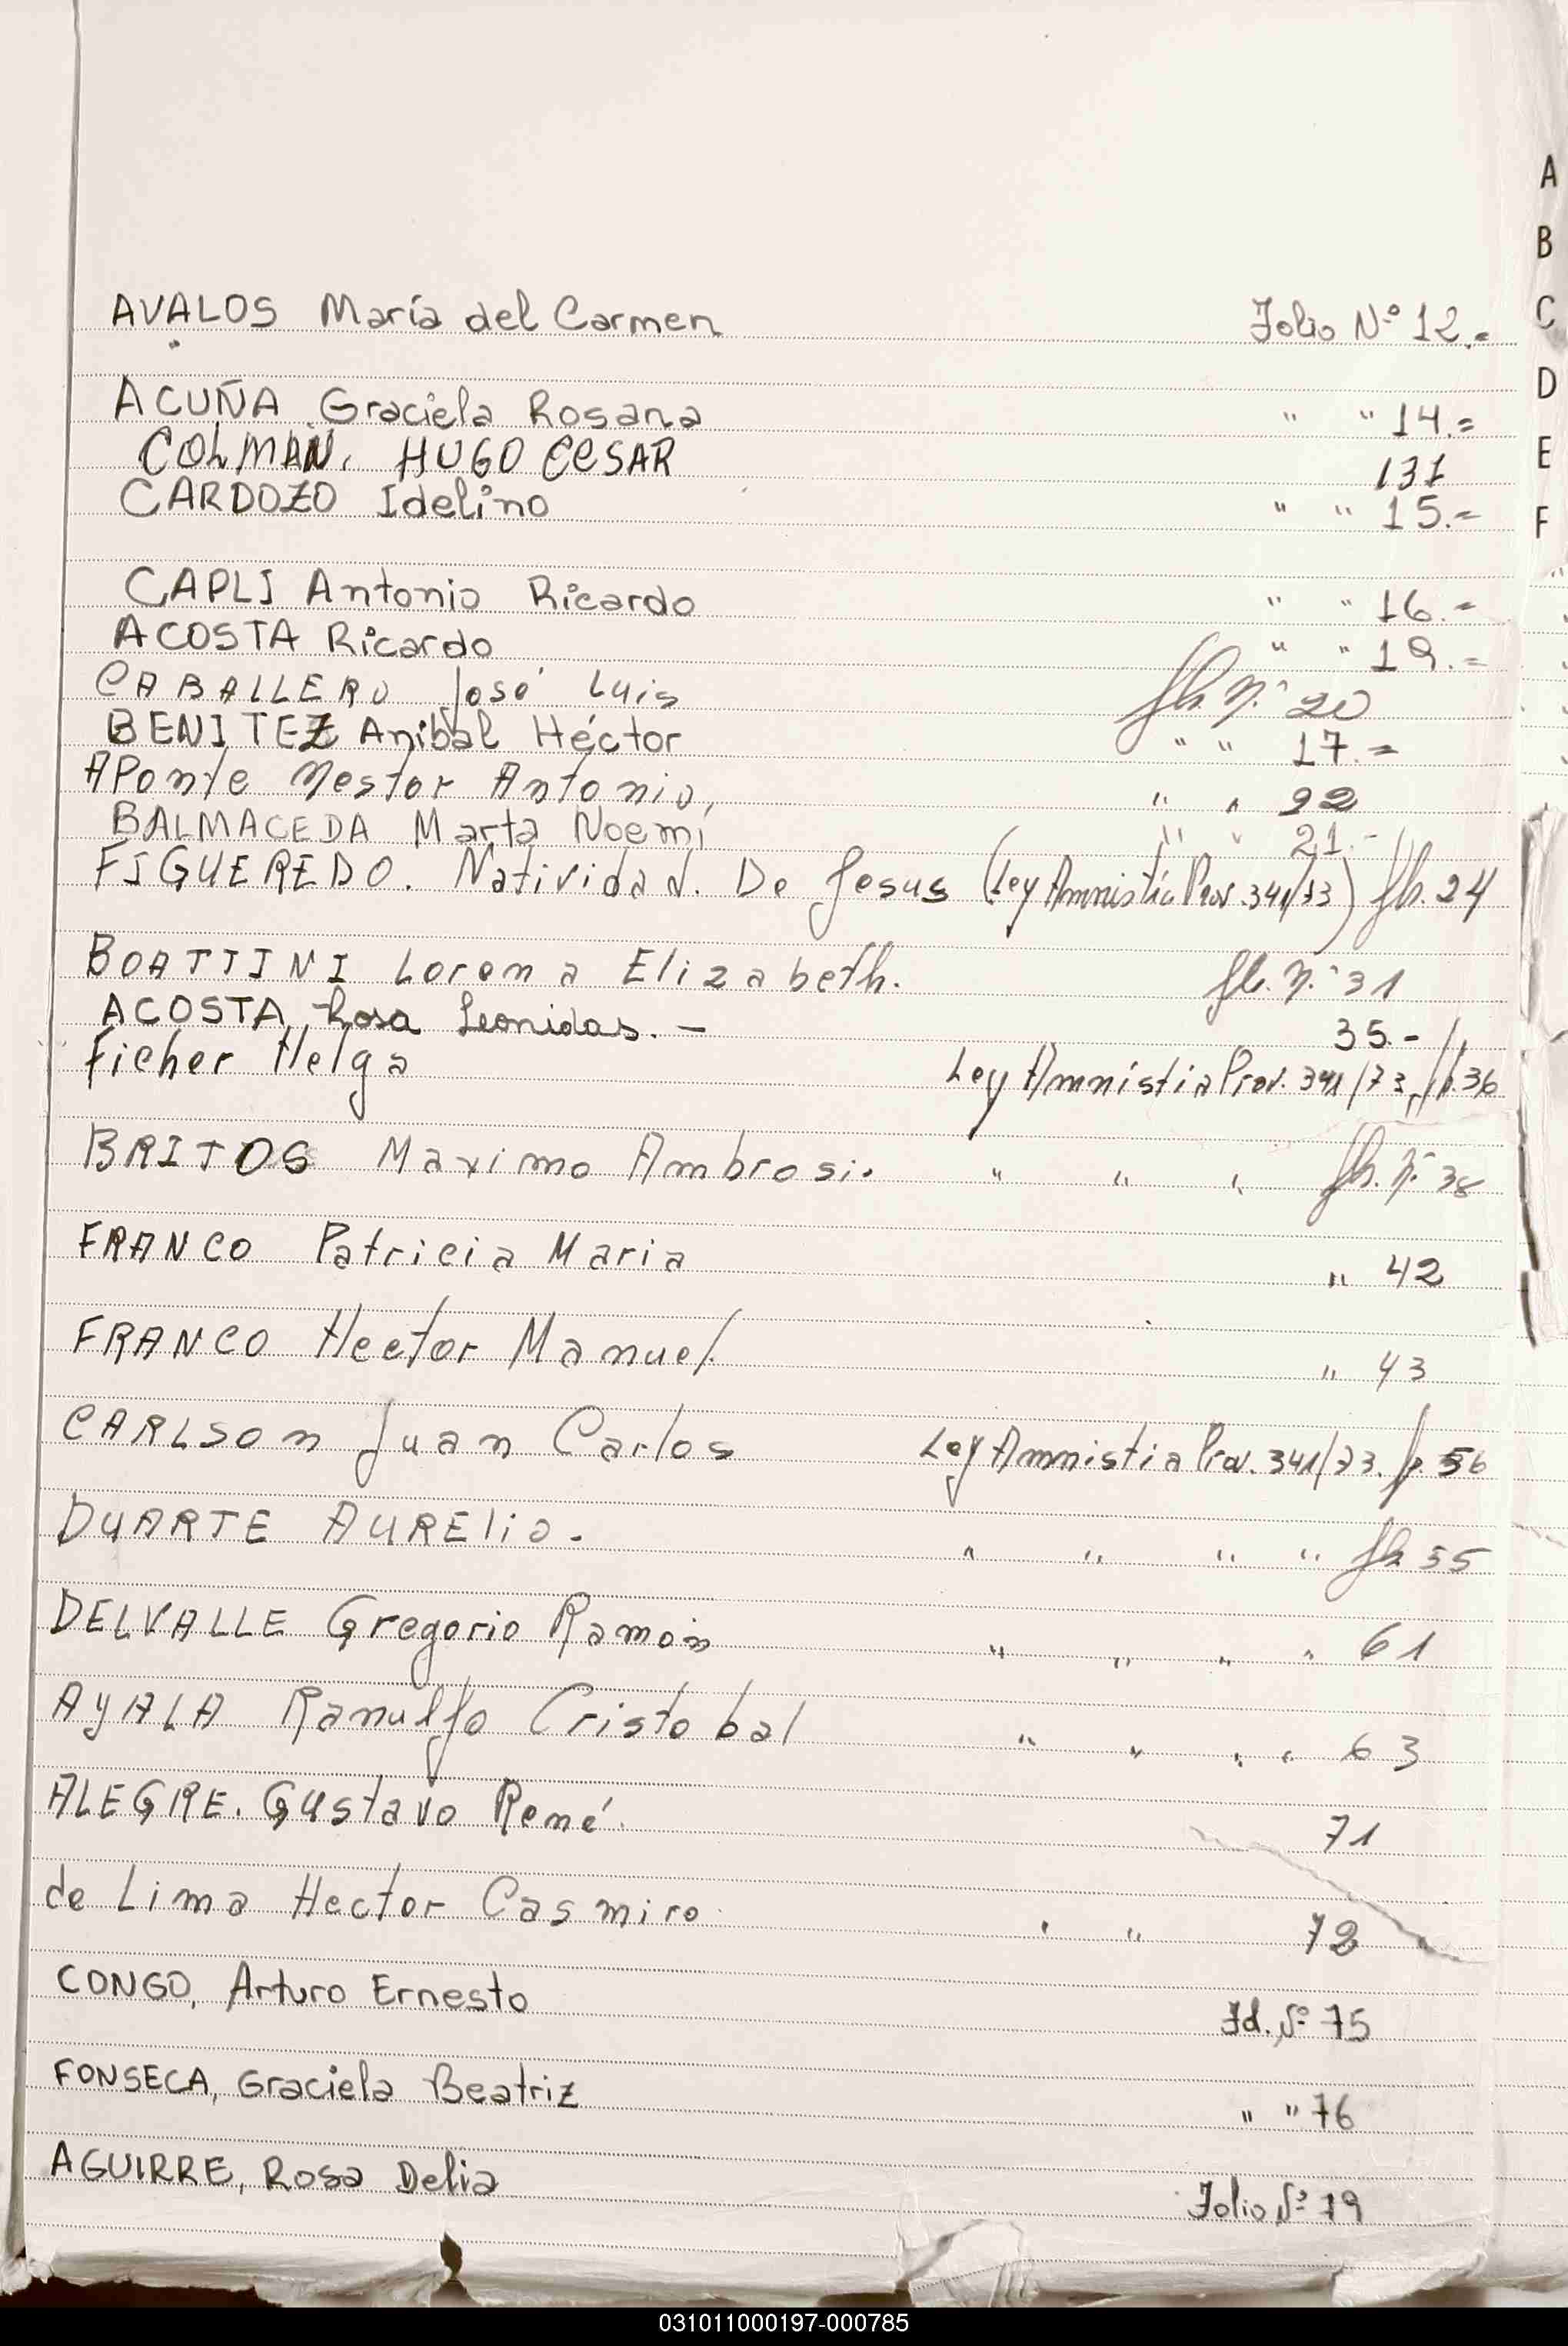 A
B
C
D
E
F
AVALOS María del Carmen Folio Nº 12.=
ACUÑA Graciela Rosana " " 14.=
COLMAN, HUGO CESAR 131
CARDOZO Idelino " " 15.=
CAPLI Antonio Ricardo " " 16.=
ACOSTA Ricardo " " 19.=
CABALLERO José Luis fl. n.º 20
BENITEZ Anibal Héctor " " 17.=
APonte Nestor Antonio, " " 22
BALMACEDA Marta Noemí " " 21.-
FIGUEREDO. Natividad. De Jesus (Ley Amnistía Prov. 341/73) fl. 24
BOATTINI Lorena Elizabeth. fl. n.º 31
ACOSTA, Rosa Leonidas.- 35.-
Ficher Helga Ley Amnistia Prov. 341/73, fl. 36
BRITOS Maximo Ambrosio " " " fl. n.º 38
FRANCO Patricia Maria " 42
FRANCO Hector Manuel. " 43
CARLSON Juan Carlos Ley Amnistia Prov. 341/73. fl. 56
DUARTE AURELio. " " " " fl 55
DELVALLE Gregorio Ramón " " " " 61
AYALA Ranulfo Cristobal " " " " 63
ALEGRE. Gustavo René. 71
de Lima Hector Casmiro " " 72
CONGO, Arturo Ernesto Fd. Nº 75
FONSECA, Graciela Beatriz " " 76
AGUIRRE, Rosa Delia Folio Nº 79
031011000197-000785